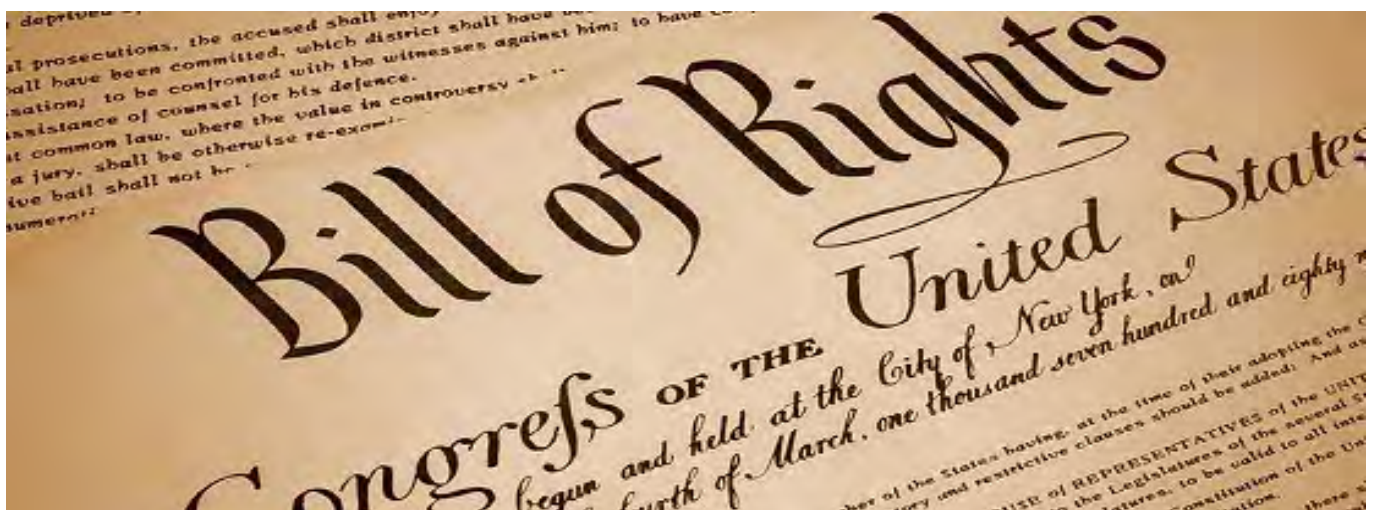 deprived
prosecutions, the accused shall enjoy
shall have been committed, which district shall have
to be confronted with the witnesses against him; to have
assistance of counsel for his defence.
common law, where the value in controversy
a jury, shall be otherwise
bail shall not be
Bill of Rights
Congreſs OF THE United States
begun and held at the City of New York, on
of March, one thousand seven hundred and eighty
of the States having, at the time of their adopting the
and restrictive clauses should be added: And as
of REPRESENTATIVES of the
the Legislatures of the several
to be valid to all
Constitution of the